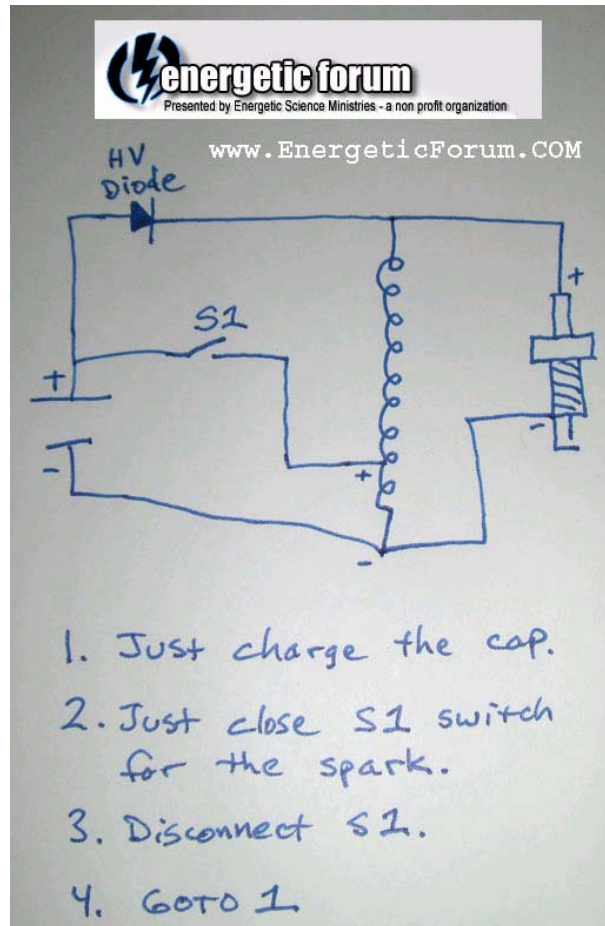 energetic forum
Presented by Energetic Science Ministries - a non profit organization
www.EnergeticForum.COM
HV
Diode
S1
+
+
-
-
+
-
1. Just charge the cap.
2. Just close S1 switch
for the spark.
3. Disconnect S1.
4. GOTO 1